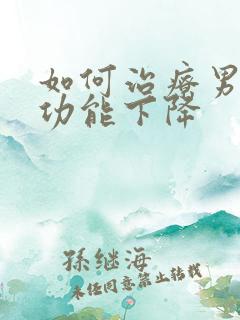 如何治疗男
功能下降
孫继海
未经同意禁止转载